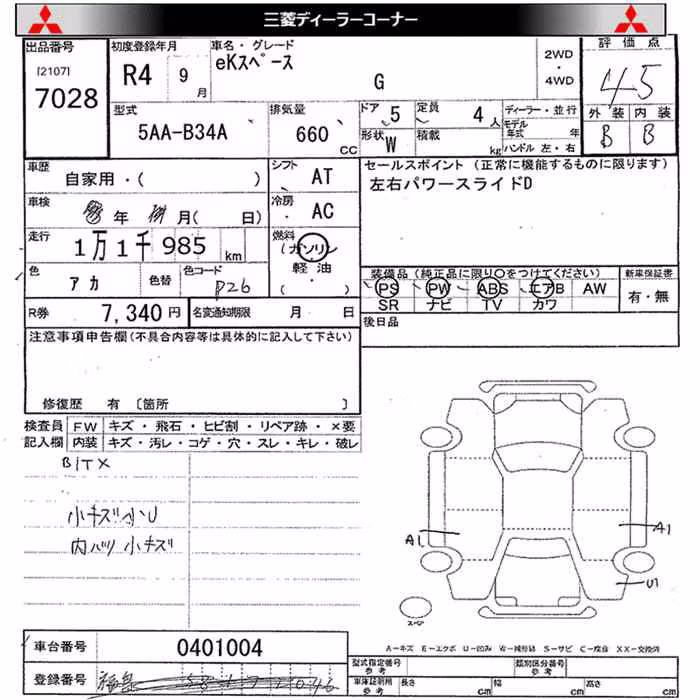 三菱ディーラーコーナー
出品番号
[2107]
7028
初度登録年月
R4 9
月
車名・グレード
eKスペース
G
2WD
・
4WD
評価点
4.5
外装 内装
B B
型式
5AA-B34A
排気量
660 CC
ドア 5
定員 4 人
形状 W
積載 kg
ディーラー・並行
モデル年式 年
ハンドル 左・右
車歴
自家用・( )
シフト
AT
セールスポイント (正常に機能するものに限ります)
左右パワースライドD
車検
年 月( 日)
冷房
AC
走行
1万1千985 km
燃料
(ガソリン
軽油
・ )
色
アカ
色替
色コード
P26
装備品(純正品に限り○をつけてください)
PS PW ABS エアB AW
SR ナビ TV カワ
新車保証書
有・無
R券
7,340円
名変通知期限 月 日
後日品
注意事項申告欄(不具合内容等は具体的に記入して下さい)
修復歴 有 〔箇所 〕
検査員
記入欄
FW キズ・飛石・ヒビ割・リペア跡・×要
内装 キズ・汚レ・コゲ・穴・スレ・キレ・破レ
BITX
小キズ小U
内ハツ小キズ
A1
A1
U1
スペア
A-キズ E-エクボ U-凹み W-補修跡 S-サビ C-腐食 XX-交換済
車台番号
0401004
登録番号
福島
型式指定番号
参考
類別区分番号
参考
車庫証明用
参考
長さ cm
幅 cm
高さ cm